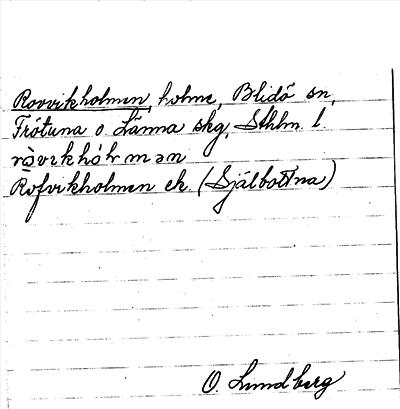 Rovvikholmen, holme, Blidö sn,
Frötuna o. Länna skg, Sthlm. l.
Rofvikholmen ek. (Själbottna)
O. Lundberg